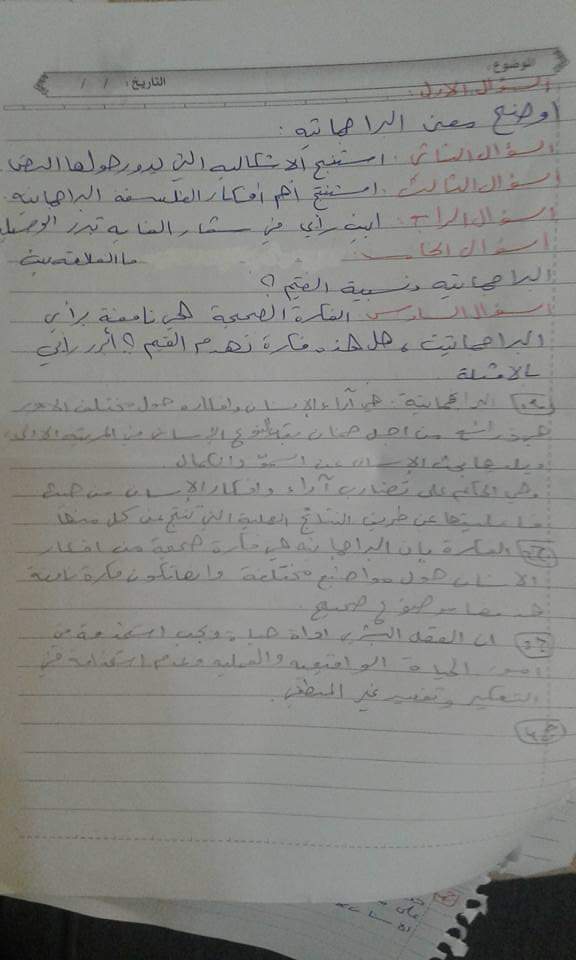 الموضوع:
التاريخ: / /
السؤال الاول:
أوضح معنى البراجماتيه:
السؤال الثاني: استنتج الاشكاليه التي يدور حولها النص
السؤال الثالث: استنتج أهم أفكار الفلسفة البراجماتيه.
السؤال الرابع: ابدي رأي في شعار الغاية تبرر الوسيلة
السؤال الخامس: ما العلاقه بين
البراجماتيه ونسبية القيم؟
السؤال السادس الفكرة الصحيحة هي نافعة برأي
البراجماتيين، هل هذه فكرة تهدم القيم؟ أبرر رأي
بالامثلة
ج1) البراجماتية: هي آراء الإنسان وافكاره حول مختلف الامور
من اجل ضمان الإنسان من المرتبة الاولى
ويليها بحث الإنسان عن السمو والكمال
وهي الحكم على تضارب آراء وافكار الإنسان من حيث
عن طريق النتائج العملية التي تنتج عن كل منها
ج2) الفكرة بان البراجماتية هي فكرة صحيحة من افكار
الانسان حول مواضيع مختلفة وانها تكون فكرة
صحيح.
ج3) ان العقل البشري اداة حياة ويجب استخدامه من
امور الحياة الواقعية والعملية وعدم استخدامه في
التفكير وتفسير غير المنطقي.
ج4